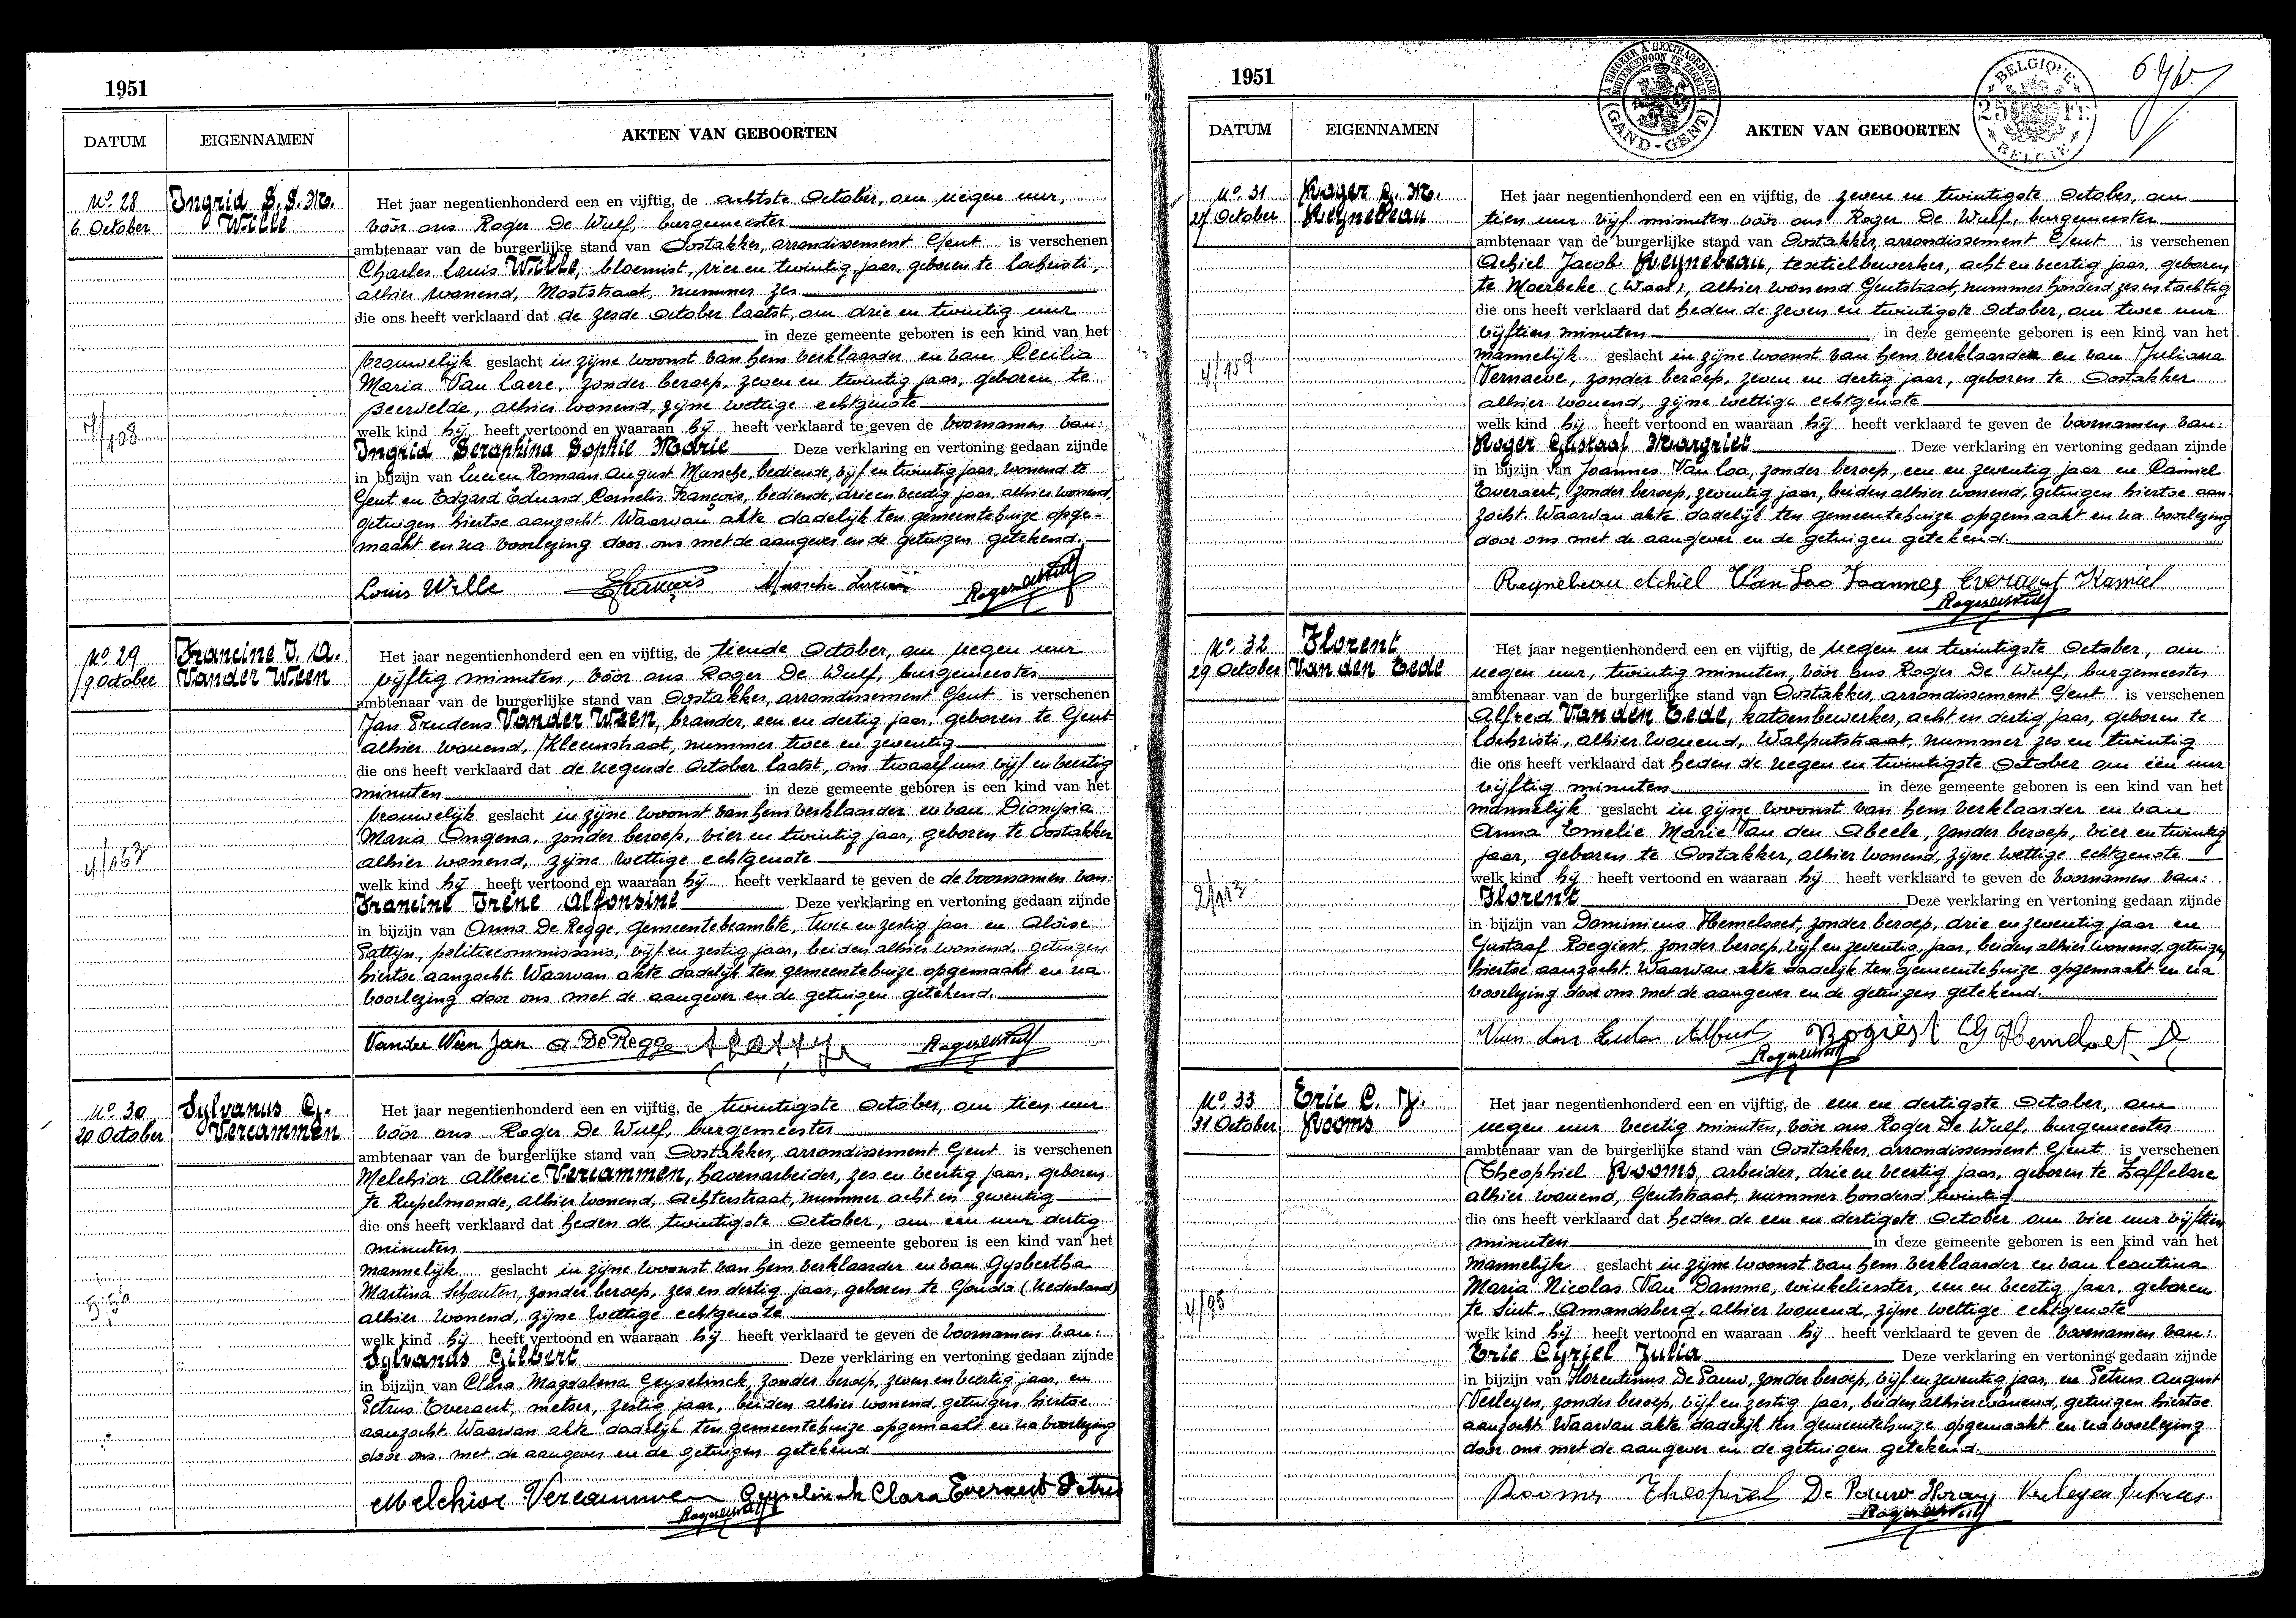 1951
DATUM
EIGENNAMEN
AKTEN VAN GEBOORTEN
No 28
6 October
Ingrid S. S. M.
Wille
Het jaar negentienhonderd een en vijftig, de achtste October, om negen uur,
vóór ons Roger De Wulf, burgemeester
ambtenaar van de burgerlijke stand van Oostakker, arrondissement Gent is verschenen
Charles Louis Wille, bloemist, vier en twintig jaar, geboren te Lochristi,
alhier wonend, Moststraat, nummer zes
die ons heeft verklaard dat de zesde October laatst, om drie en twintig uur
in deze gemeente geboren is een kind van het
vrouwelijk geslacht in zijne woonst van hem verklaarder en van Cecilia
Maria Van Laere, zonder beroep, zeven en twintig jaar, geboren te
Beervelde, alhier wonend, zijne wettige echtgenote
welk kind hij heeft vertoond en waaraan hij heeft verklaard te geven de voornamen van:
Ingrid Seraphina Sophie Marie Deze verklaring en vertoning gedaan zijnde
in bijzijn van Lucien Romaan August Mussche, bediende, vijf en twintig jaar, wonend te
Gent en Edgard Eduard Cornelis François, bediende, drie en veertig jaar, alhier wonend,
getuigen hiertoe aanzocht. Waarvan akte dadelijk ten gemeentehuize opge-
maakt en na voorlezing door ons met de aangever en de getuigen getekend.
7/108
Louis Wille EFrançois Mussche Lucien RogerdeWulf
No 29
9 October
Francine I. A.
Vander Ween
Het jaar negentienhonderd een en vijftig, de tiende October, om negen uur
vijftig minuten, vóór ons Roger De Wulf, burgemeester
ambtenaar van de burgerlijke stand van Oostakker, arrondissement Gent is verschenen
Jan Prudens Vander Ween, brander, een en dertig jaar, geboren te Gent
alhier wonend, Kleemstraat, nummer twee en zeventig
die ons heeft verklaard dat de negende October laatst, om twaalf uur vijf en veertig
minuten in deze gemeente geboren is een kind van het
vrouwelijk geslacht in zijne woonst van hem verklaarder en van Dionysia
Maria Ongena, zonder beroep, vier en twintig jaar, geboren te Oostakker
alhier wonend, zijne wettige echtgenote
welk kind hij heeft vertoond en waaraan hij heeft verklaard te geven de de voornamen van:
Francine Irène Alfonsine Deze verklaring en vertoning gedaan zijnde
in bijzijn van Arme De Regge, gemeentebeambte, twee en zestig jaar en Aloïse
Pattyn, politiecommissaris, vijf en zestig jaar, beiden alhier wonend, getuigen
hiertoe aanzocht. Waarvan akte dadelijk ten gemeentehuize opgemaakt en na
voorlezing door ons met de aangever en de getuigen getekend.
Vander Ween Jan a De Regge RogerdeWulf
No 30
20 October
Sylvanus G.
Vercammen
Het jaar negentienhonderd een en vijftig, de twintigste October, om tien uur
vóór ons Roger De Wulf, burgemeester
ambtenaar van de burgerlijke stand van Oostakker, arrondissement Gent is verschenen
Melchior Alberic Vercammen, havenarbeider, zes en veertig jaar, geboren
te Rupelmonde, alhier wonend, Achterstraat, nummer acht en zeventig
die ons heeft verklaard dat heden de twintigste October, om een uur dertig
minuten in deze gemeente geboren is een kind van het
mannelijk geslacht in zijne woonst van hem verklaarder en van Gysbertha
Martina Schouten, zonder beroep, zes en dertig jaar, geboren te Gouda (Nederland)
alhier wonend, zijne wettige echtgenote
welk kind hij heeft vertoond en waaraan hij heeft verklaard te geven de voornamen van:
Sylvanus Gilbert Deze verklaring en vertoning gedaan zijnde
in bijzijn van Clara Magdalena Geyselinck, zonder beroep, zeven en veertig jaar, en
Petrus Everaert, metser, zestig jaar, beiden alhier wonend, getuigen hiertoe
aanzocht. Waarvan akte dadelijk ten gemeentehuize opgemaakt en na voorlezing
door ons met de aangever en de getuigen getekend
Melchior Vercammen Geyselinck Clara Everaert Petrus
RogerdeWulf
1951
A TIMBRER À L'EXTRAORDINAIRE
BUITENGEWOON TE ZEGELEN
GAND-GENT
BELGIQUE
25 Fr.
BELGIE
DATUM
EIGENNAMEN
AKTEN VAN GEBOORTEN
No 31
27 October
Roger G. M.
Reynebeau
Het jaar negentienhonderd een en vijftig, de zeven en twintigste October, om
tien uur vijf minuten vóór ons Roger De Wulf, burgemeester
ambtenaar van de burgerlijke stand van Oostakker, arrondissement Gent is verschenen
Achiel Jacob Reynebeau, textielbewerker, acht en veertig jaar, geboren
te Moerbeke (Waas), alhier wonend Gentstraat, nummer honderd zes en tachtig
die ons heeft verklaard dat heden de zeven en twintigste October, om twee uur
vijftien minuten in deze gemeente geboren is een kind van het
mannelijk geslacht in zijne woonst van hem verklaarder en van Juliana
Vernaeve, zonder beroep, zeven en dertig jaar, geboren te Oostakker
alhier wonend, zijne wettige echtgenote
welk kind hij heeft vertoond en waaraan hij heeft verklaard te geven de voornamen van:
Roger Gustaaf Margriet Deze verklaring en vertoning gedaan zijnde
in bijzijn van Joannes Van Loo, zonder beroep, een en zeventig jaar en Camiel
Everaert, zonder beroep, zeventig jaar, beiden alhier wonend, getuigen hiertoe aan-
zocht. Waarvan akte dadelijk ten gemeentehuize opgemaakt en na voorlezing
door ons met de aangever en de getuigen getekend.
4/159
Reynebeau Achiel Van Loo Joannes Everaert Kamiel
RogerdeWulf
No 32
29 October
Florent
Van den Eede
Het jaar negentienhonderd een en vijftig, de negen en twintigste October, om
negen uur, twintig minuten, vóór ons Roger De Wulf, burgemeester
ambtenaar van de burgerlijke stand van Oostakker, arrondissement Gent is verschenen
Alfred Van den Eede, katoenbewerker, acht en dertig jaar, geboren te
Lochristi, alhier wonend, Walputstraat, nummer zes en twintig
die ons heeft verklaard dat heden de negen en twintigste October om één uur
vijftig minuten in deze gemeente geboren is een kind van het
mannelijk geslacht in zijne woonst van hem verklaarder en van
Anna Emelie Marie Van den Abeele, zonder beroep, vier en twintig
jaar, geboren te Oostakker, alhier wonend, zijne wettige echtgenote
welk kind hij heeft vertoond en waaraan hij heeft verklaard te geven de voornamen van:
Florent Deze verklaring en vertoning gedaan zijnde
in bijzijn van Dominicus Hemelsoet, zonder beroep, drie en zeventig jaar en
Gustaaf Roegiest, zonder beroep, vijf en zeventig jaar, beiden alhier wonend, getuigen
hiertoe aanzocht. Waarvan akte dadelijk ten gemeentehuize opgemaakt en na
voorlezing door ons met de aangever en de getuigen getekend.
2/113
Rogiest G Hemelsoet D
RogerdeWulf
No 33
31 October
Eric C. J.
Rooms
Het jaar negentienhonderd een en vijftig, de een en dertigste October, om
negen uur veertig minuten, vóór ons Roger De Wulf, burgemeester
ambtenaar van de burgerlijke stand van Oostakker, arrondissement Gent is verschenen
Theophiel Rooms, arbeider, drie en veertig jaar, geboren te Zaffelare
alhier wonend, Gentstraat, nummer honderd twintig
die ons heeft verklaard dat heden de een en dertigste October om vier uur vijftien
minuten in deze gemeente geboren is een kind van het
mannelijk geslacht in zijne woonst van hem verklaarder en van Leontina
Maria Nicolas Van Damme, winkelierster, een en veertig jaar, geboren
te Sint-Amandsberg, alhier wonend, zijne wettige echtgenote
welk kind hij heeft vertoond en waaraan hij heeft verklaard te geven de voornamen van:
Eric Cyriel Julia Deze verklaring en vertoning gedaan zijnde
in bijzijn van Florentinus De Pauw, zonder beroep, vijf en zeventig jaar, en Petrus August
Verleyen, zonder beroep, vijf en zestig jaar, beiden alhier wonend, getuigen hiertoe
aanzocht. Waarvan akte dadelijk ten gemeentehuize opgemaakt en na voorlezing
door ons met de aangever en de getuigen getekend.
4/98
Rooms Theophiel De Pauw Verleyen Petrus
RogerdeWulf